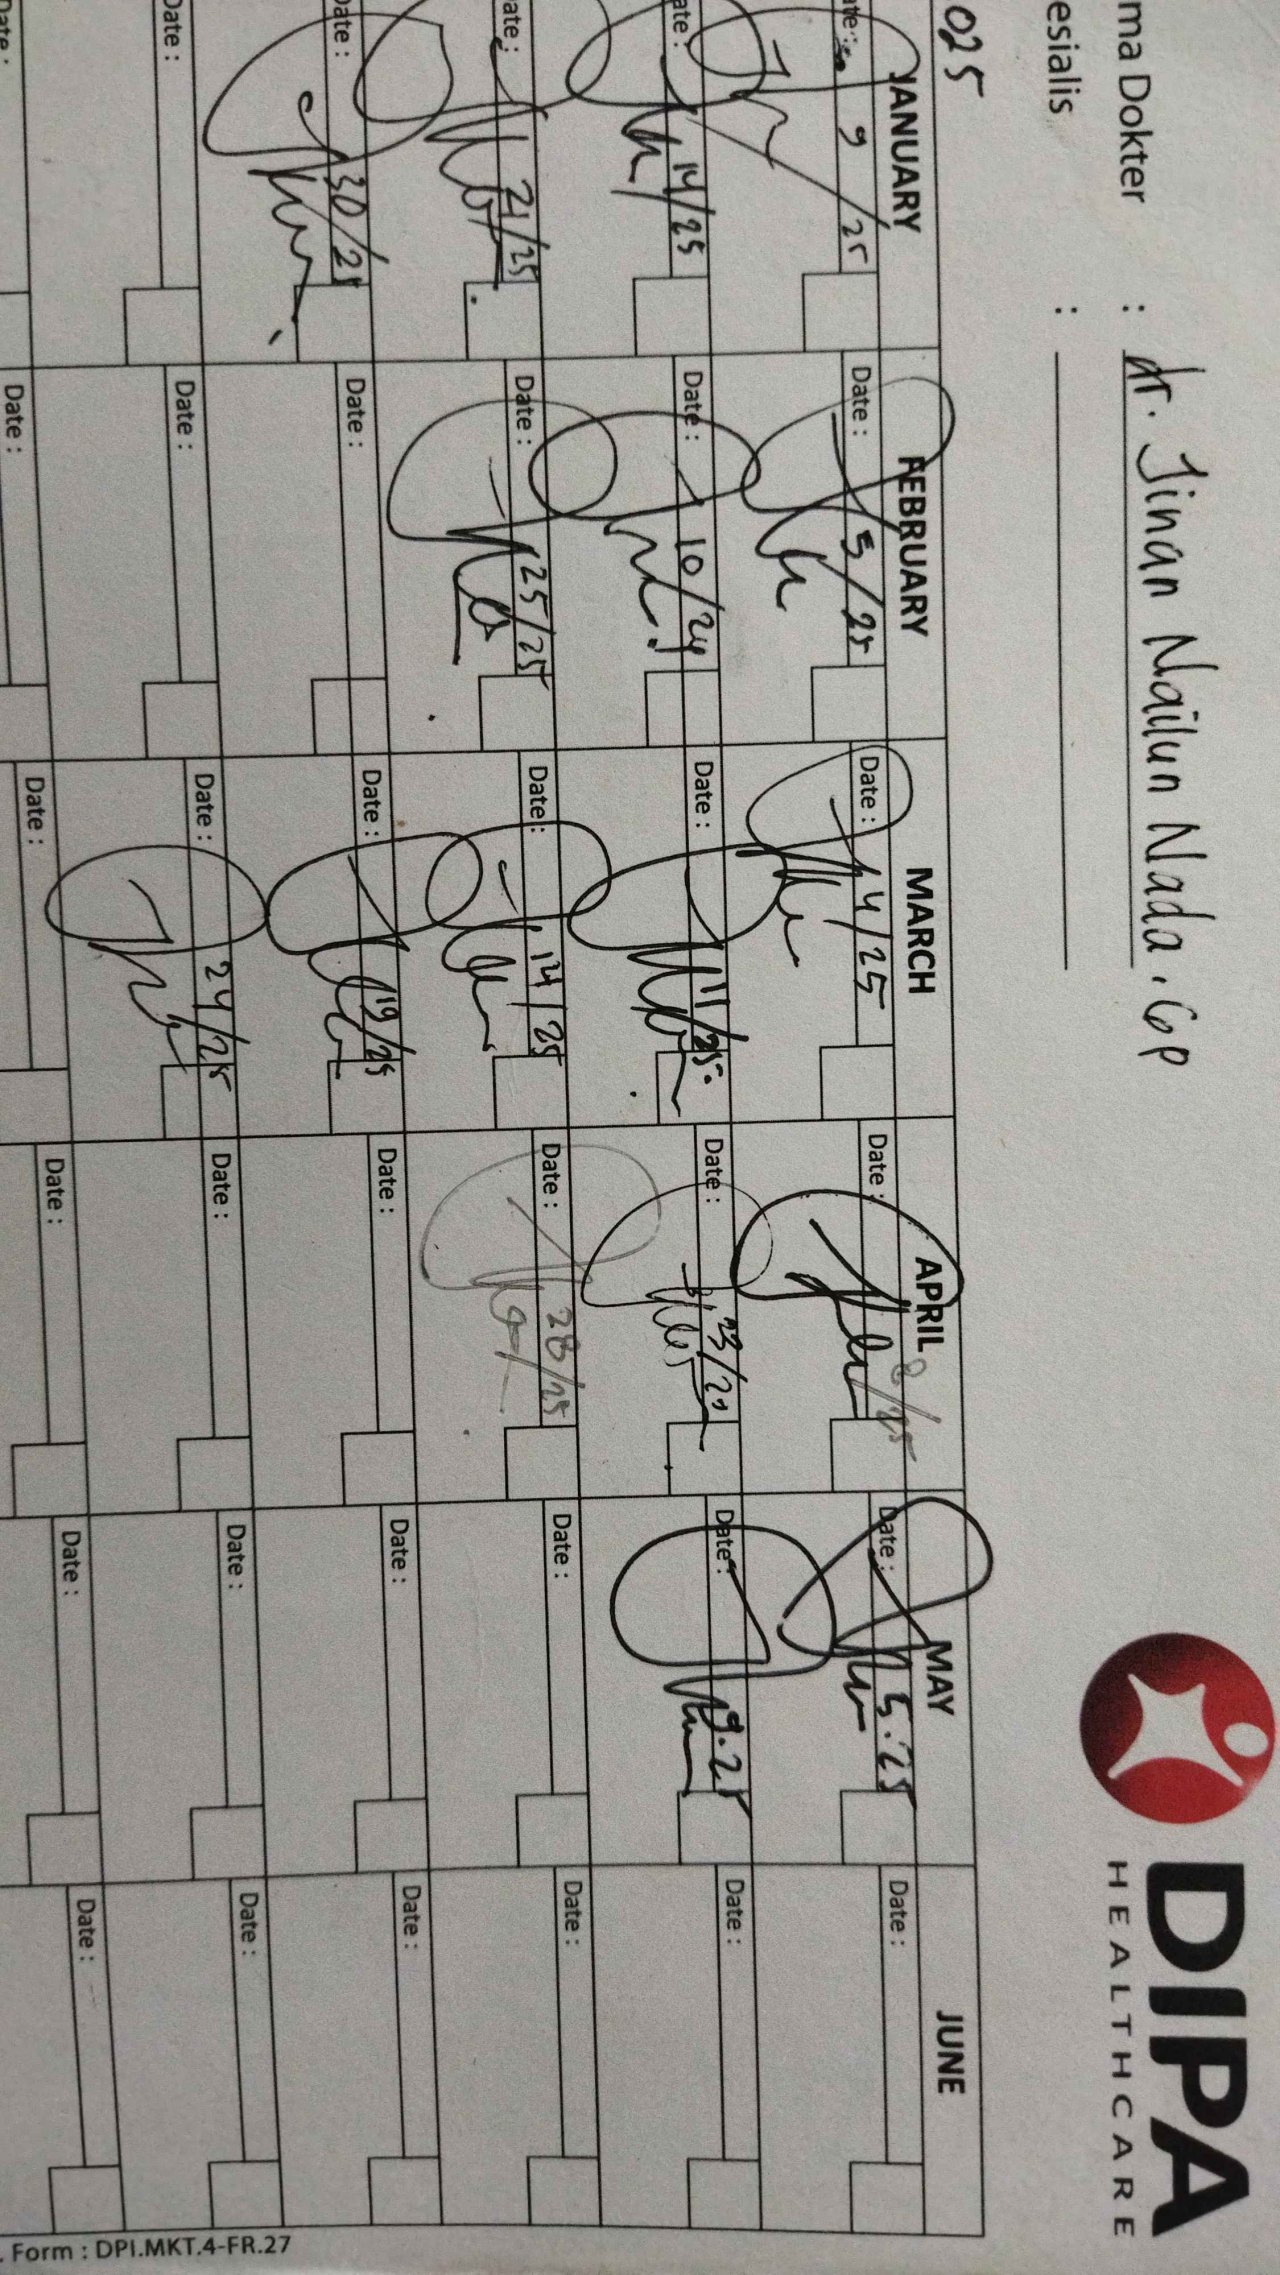 DIPA
HEALTHCARE
ma Dokter : dr. Jinan Nailun Nada. Gp
esialis :
025
JANUARY FEBRUARY MARCH APRIL MAY JUNE
ate: 9/25 Date: 5/25 Date: 4/25 Date: 8/25 Date: 5.25 Date:
ate: 14/25 Date: 10/24 Date: 11/25 Date: 23/25 Date: 9.25 Date:
ate: 21/25 Date: 25/25 Date: 14/25 Date: 28/25 Date: Date:
Date: 30/25 Date: Date: 19/25 Date: Date: Date:
Date: Date: Date: 24/25 Date: Date: Date:
Date: Date: Date: Date: Date: Date:
. Form : DPI.MKT.4-FR.27